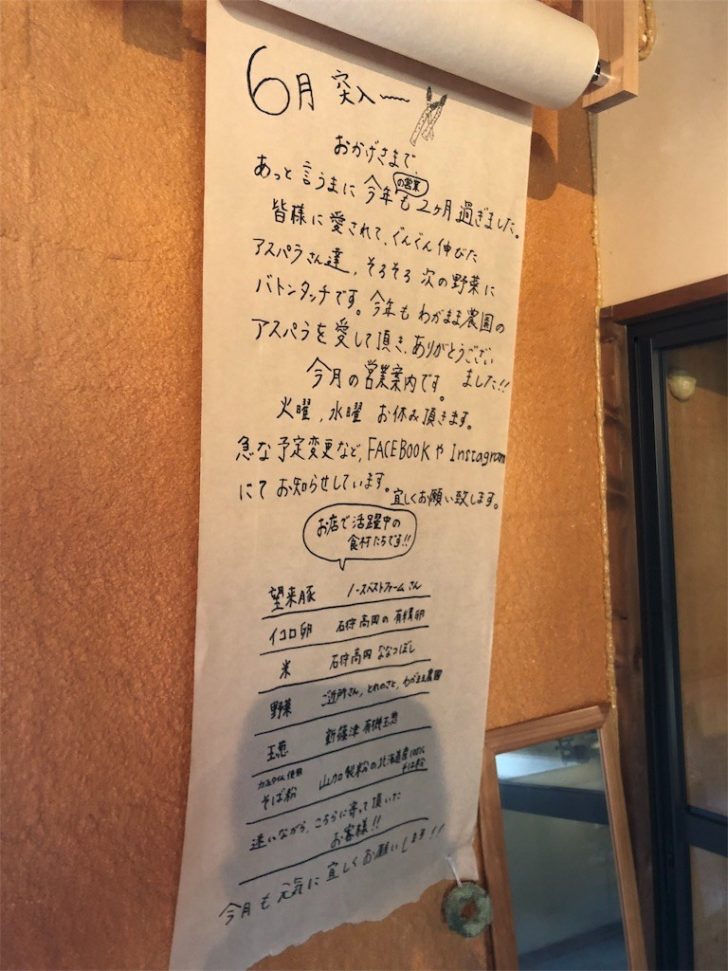 6月 突入〜
おかげさまで、
あっと言うまに 今年も(の営業)2ヶ月過ぎました。
皆様に愛されて、ぐんぐん伸びた
アスパラさん達、そろそろ 次の野菜に
バトンタッチです。今年も わがまま農園の
アスパラを愛して頂き、ありがとうござい
ました!!
今月の営業案内です。
火曜、水曜 お休み頂きます。
急な予定変更など、FACEBOOKや Instagram
にて お知らせしています。宜しくお願い致します。
お店で活躍中の
食材たちです!!
望来豚 ノースベストファームさん
イコロ卵 石狩高岡の有精卵
米 石狩高岡 ななつぼし
野菜 ご近所さん、とれのさと、わがまま農園
玉葱 新篠津 有機玉葱
そば粉 山加製粉の北海道産100%
そば粉
迷いながら、こちらに寄って頂いた
お客様!!
今月も 元気に 宜しくお願いします!!